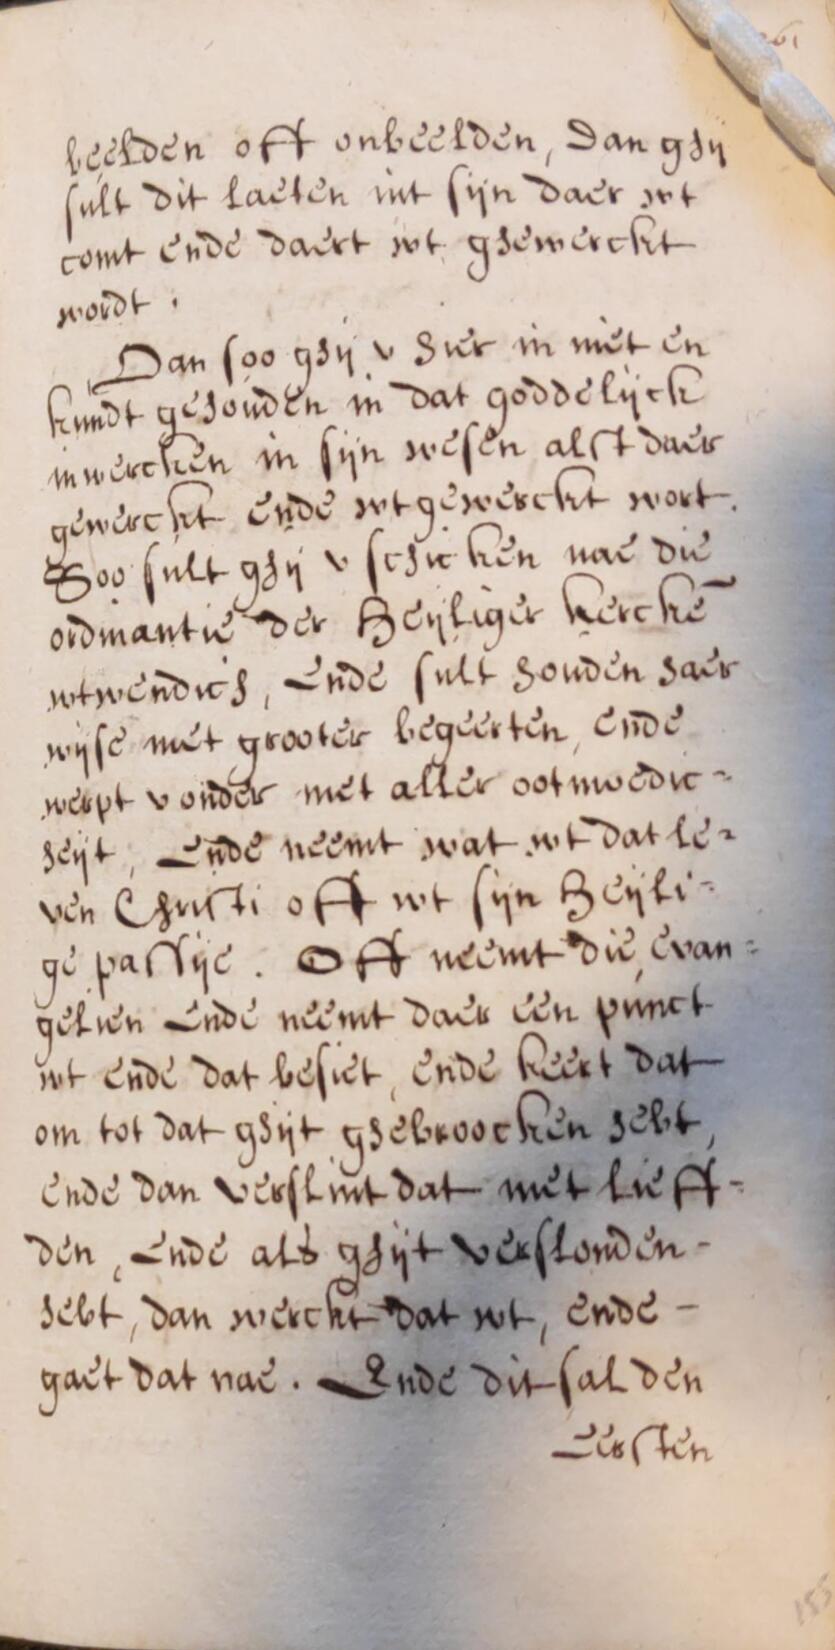 beelden off onbeelden, Dan ghij
sult dit laeten int sijn daer wt
comt ende daert wt ghewerckt
wordt.
Dan soo ghij v hier in niet en
kundt gehouden in dat goddelijck
inwercken in sijn wesen alst daer
gewerckt ende wtgewerckt wort.
Soo sult ghij v schicken nae die
ordinantie der Heijliger kerckē
wtwendich, Ende sult houden haer
wijse met grooter begeerten, ende
werpt v onder met aller ootmoedic-
heijt, Ende neemt wat wt dat le-
ven Christi off wt sijn Heijli-
ge passije. Off neemt die evan-
gelien Ende neemt daer een punct
wt ende dat besiet, ende keert dat
om tot dat ghijt ghebroocken hebt,
ende dan verslint dat met lieff-
den, Ende als ghijt verslonden-
hebt, dan werckt dat wt, ende-
gaet dat nae. Ende dit sal den
Eersten
155